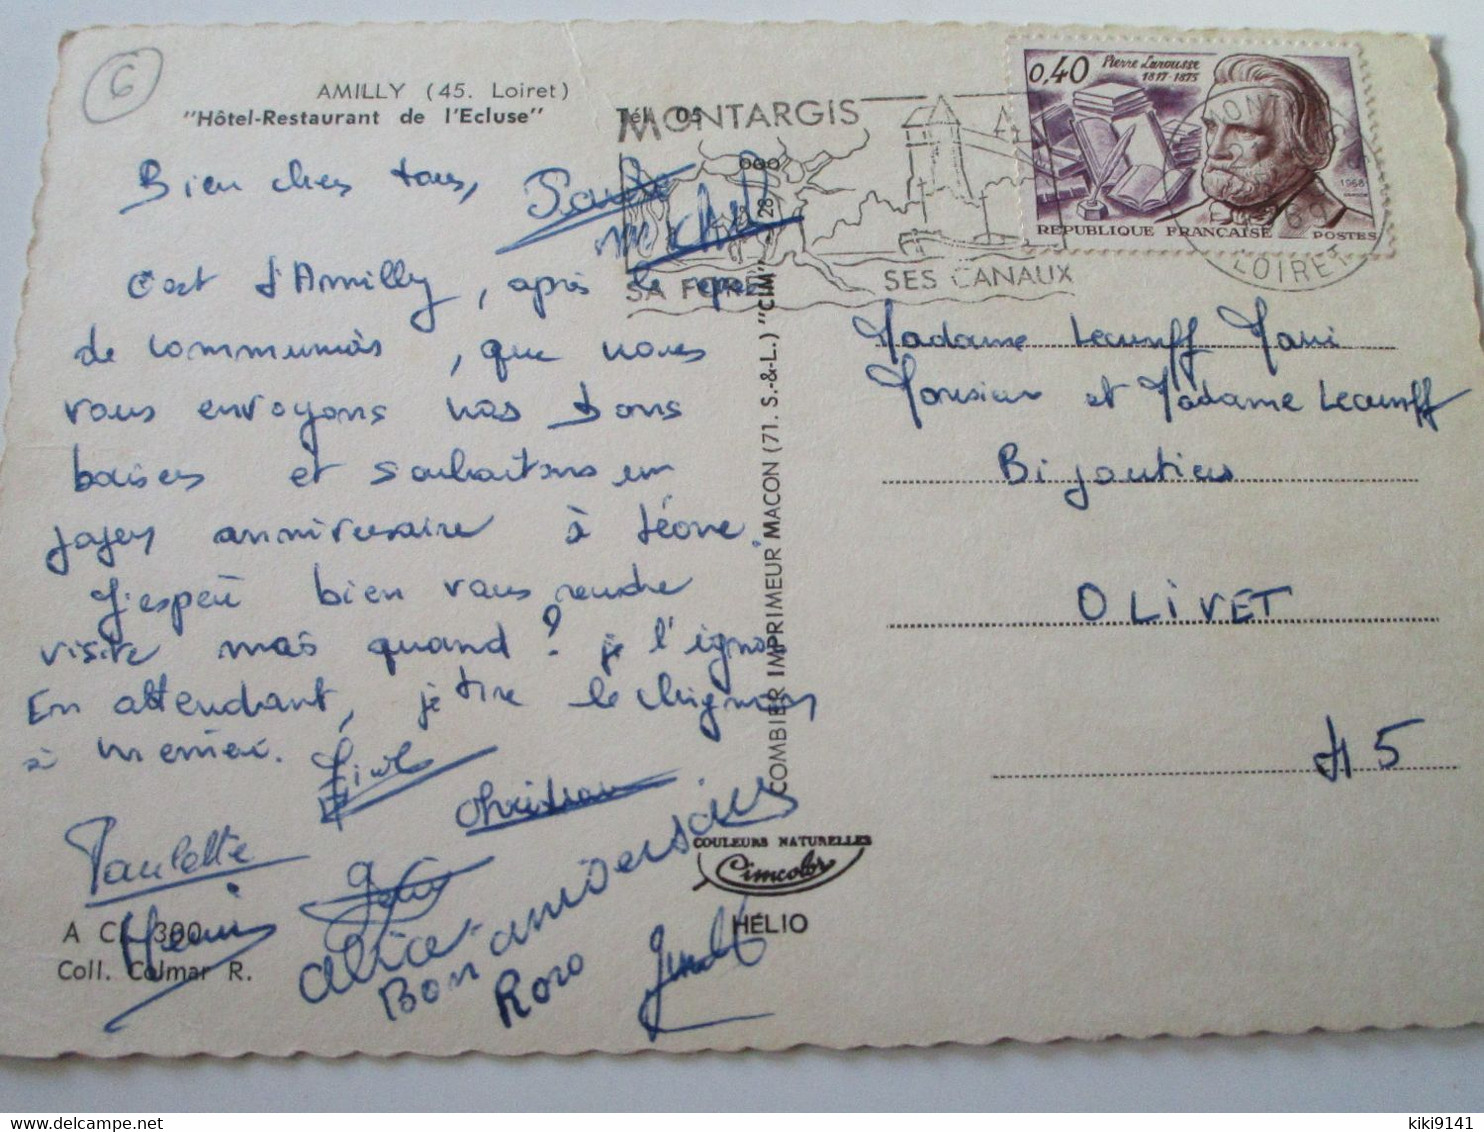 6
AMILLY (45. Loiret)
"Hôtel-Restaurant de l'Ecluse"
Tél. 05
MONTARGIS
SA FORET
SES CANAUX
0,40 Pierre Larousse
1817-1875
1968
REPUBLIQUE FRANÇAISE POSTES
LOIRET
Bien chers tous,
Michel
C'est d'Amilly, après le repas
de communion, que nous
vous envoyons nos bons
baisers et souhaitons un
joyeux anniversaire à Léone.
J'espère bien vous rendre
visite mais quand? je l'ignore
En attendant, je tire le chignon
à
Christian
Paulette
Henri
Alice
Bon anniversaire
Roro
A CL 390
Coll. Colmar R.
COMBIER IMPRIMEUR MACON (71. S.-&-L.) "CIM"
COULEURS NATURELLES
Cimcolor
HÉLIO
Madame Lecunff Marie
Monsieur et Madame Lecunff
Bijoutiers
OLIVET
45
kiki9141
delcampe.net